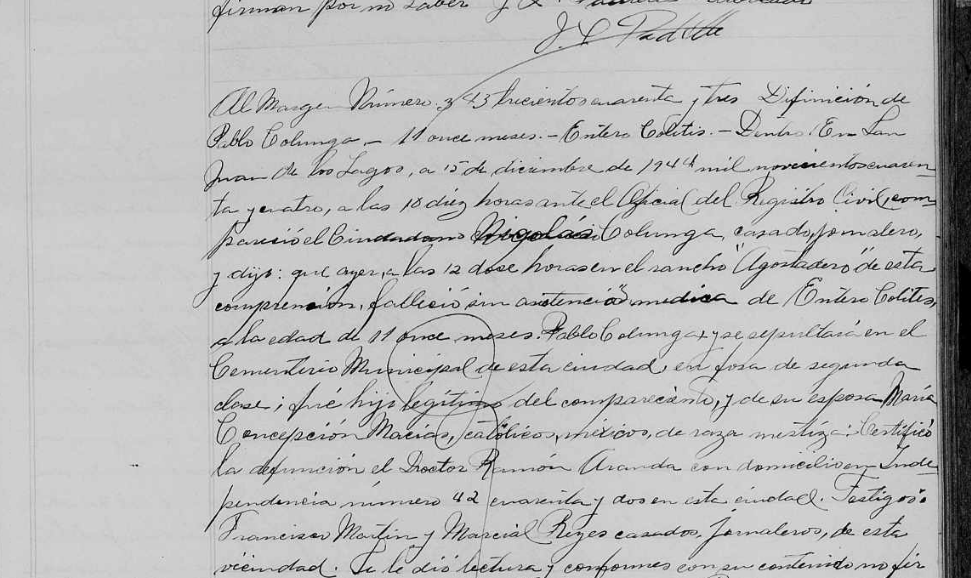 firman por no saber J. L. Padilla
J L Padilla
Al Margen Número. 343 trecientos cuarenta y tres Difinición de
Pablo Colunga — 11 once meses. — Entero Colitis. — Dentro En San
Juan de los Lagos, a 15 de diciembre de 1944 mil novecientos cuaren-
ta y cuatro, a las 10 diez horas ante el Oficial del Registro Civil com-
pareció el Ciudadano Nigolás Colunga, casado, jornalero,
y dijo: que ayer, a las 12 dose horas en el rancho "Agostadero" de esta
comprención, falleció sin asistencia medica de Entero Colites,
a la edad de 11 once meses. Pablo Colunga, y se sepultará en el
Cementerio Municipal de esta ciudad, en fosa de segunda
clase; fué hijo legítimo del compareciento, y de su esposa María
Concepción Macías, católicos, mexicos, de raza mestiza: Certificó
la defunción el Doctor Ramón Aranda con domicilio en Inde
pendencia número 42 cuarenta y dos en esta ciudad. Testigos:
Francisco Martin y Marcial Reyes casados, jornaleros, de esta
vecindad. Se le dió lectura y conformes con su contenido no fir